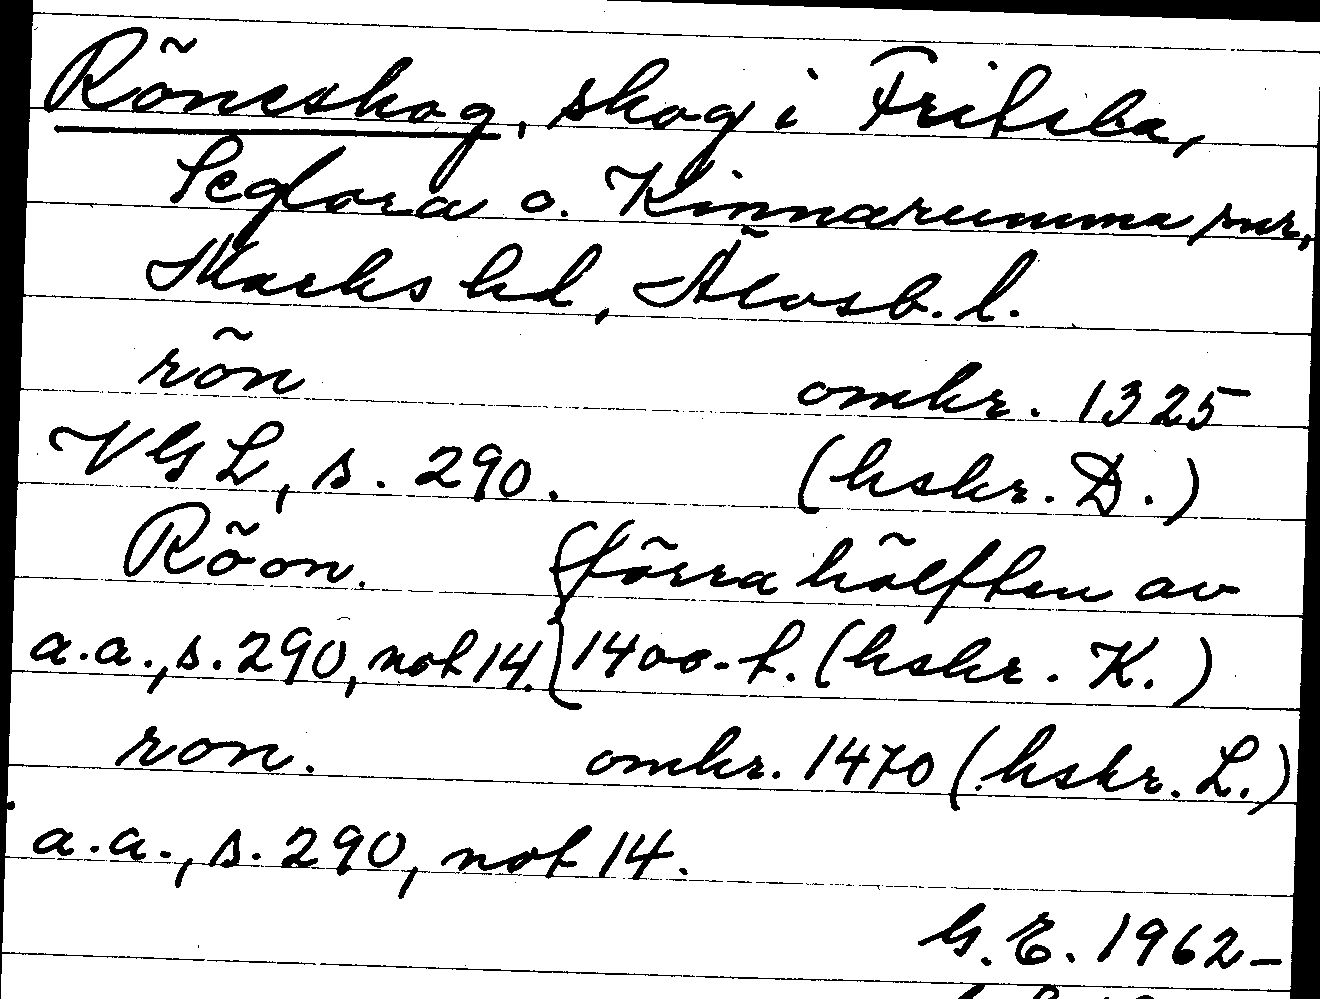 Röneskog, skog i Fritsla,
Seglora o. Kinnarumma snr,
Marks hd, Älvsb. l.
rön omkr. 1325
VGL, s. 290. (hskr. D.)
Röon. förra hälften av
a.a., s. 290, not 14. 1400-t. (hskr. K.)
ron. omkr. 1470 (hskr. L.)
a.a., s. 290, not 14.
G. E. 1962-